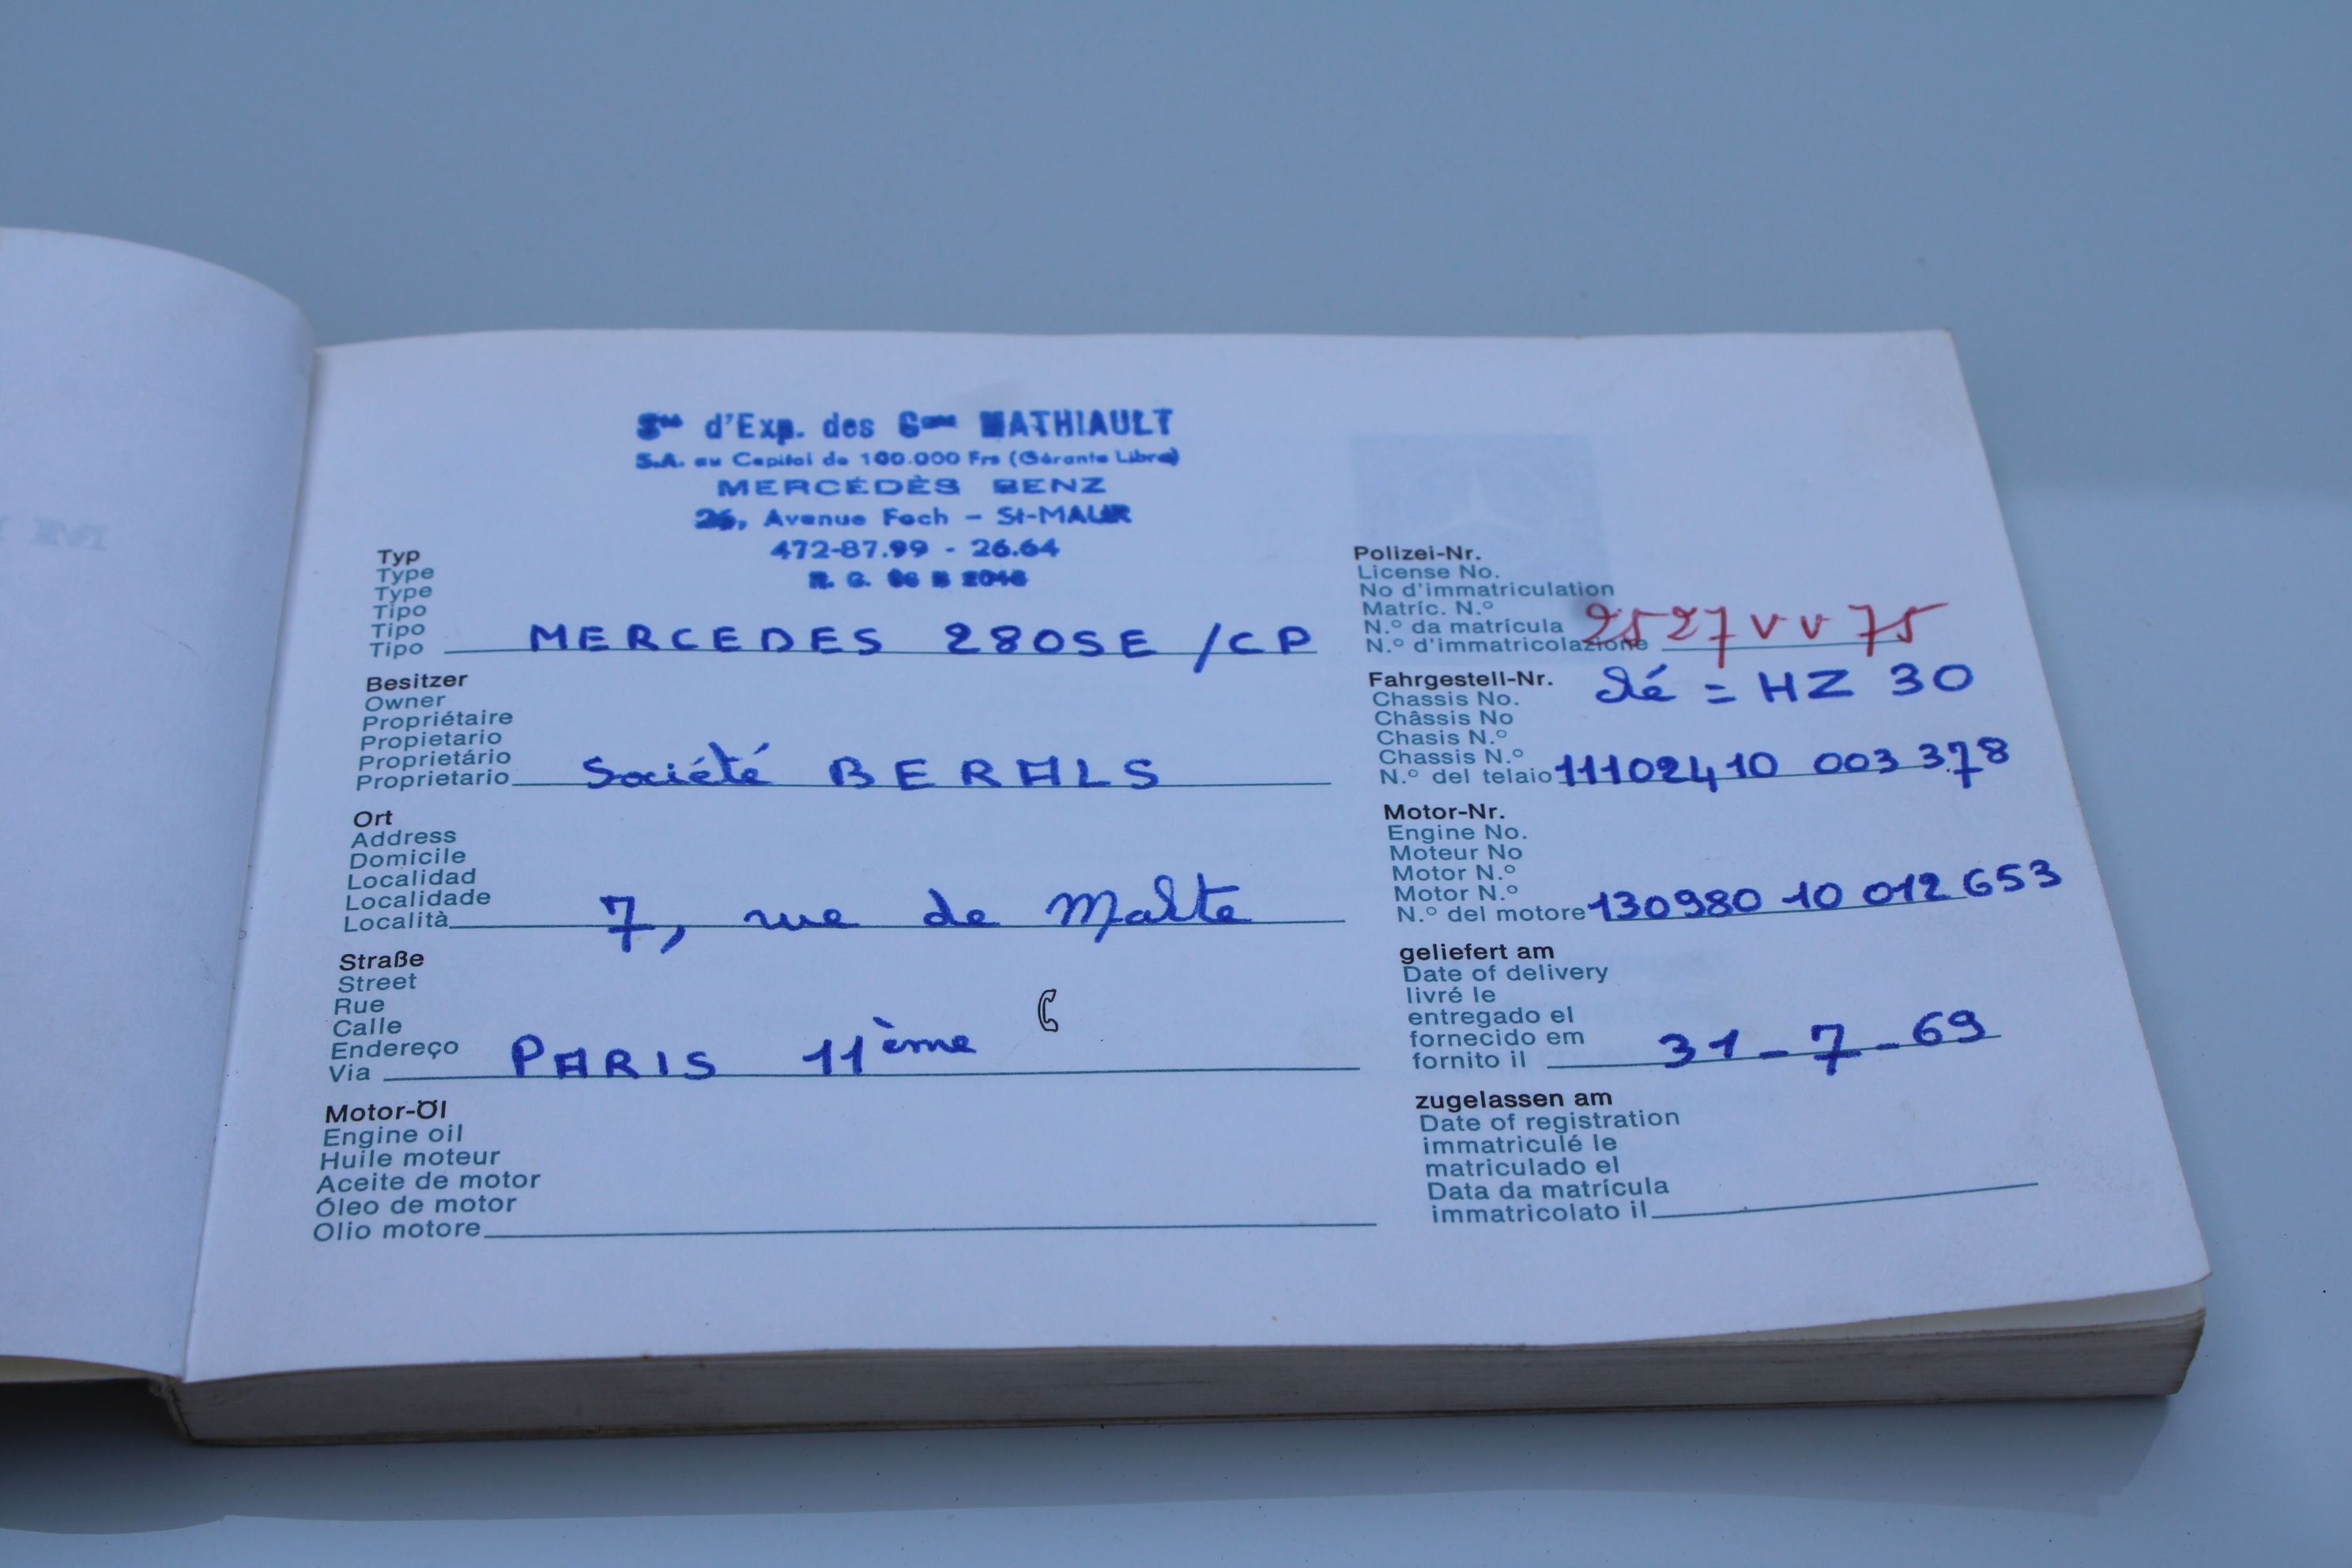 d'Exp. des MATHIAULT
S.A. au Capital de 100.000 Frs (Gérante Libre)
MERCÉDÈS BENZ
26, Avenue Foch - St-MAUR
472-87.99 - 26.64
Typ
Type
Type
Tipo
Tipo
Tipo MERCEDES 280SE /CP
Besitzer
Owner
Propriétaire
Propietario
Proprietário
Proprietario Société BERALS
Ort
Address
Domicile
Localidad
Localidade
Località 7, rue de Malte
Straße
Street
Rue
Calle
Endereço
Via PARIS 11ème
Motor-Öl
Engine oil
Huile moteur
Aceite de motor
Óleo de motor
Olio motore
Polizei-Nr.
License No.
No d'immatriculation
Matríc. N.º
N.º da matrícula
N.º d'immatricolazione 2527 VV 75
Fahrgestell-Nr. Clé = HZ 30
Chassis No.
Châssis No
Chasis N.º
Chassis N.º
N.º del telaio 11102410 003 378
Motor-Nr.
Engine No.
Moteur No
Motor N.º
Motor N.º
N.º del motore 130980 10 012 653
geliefert am
Date of delivery
livré le
entregado el
fornecido em
fornito il 31-7-69
zugelassen am
Date of registration
immatriculé le
matriculado el
Data da matrícula
immatricolato il